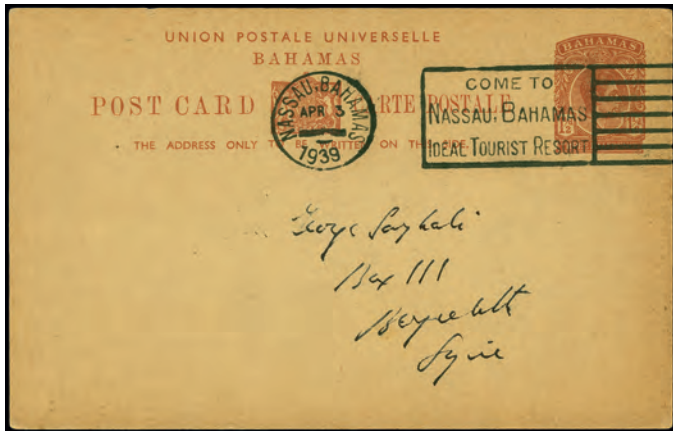 UNION POSTALE UNIVERSELLE
BAHAMAS
POST CARD CARTE POSTALE
THE ADDRESS ONLY TO BE WRITTEN ON THIS SIDE.
NASSAU, BAHAMAS
APR 3
1939
COME TO
NASSAU, BAHAMAS
IDEAL TOURIST RESORT
BAHAMAS
George
Box 111
Syrie